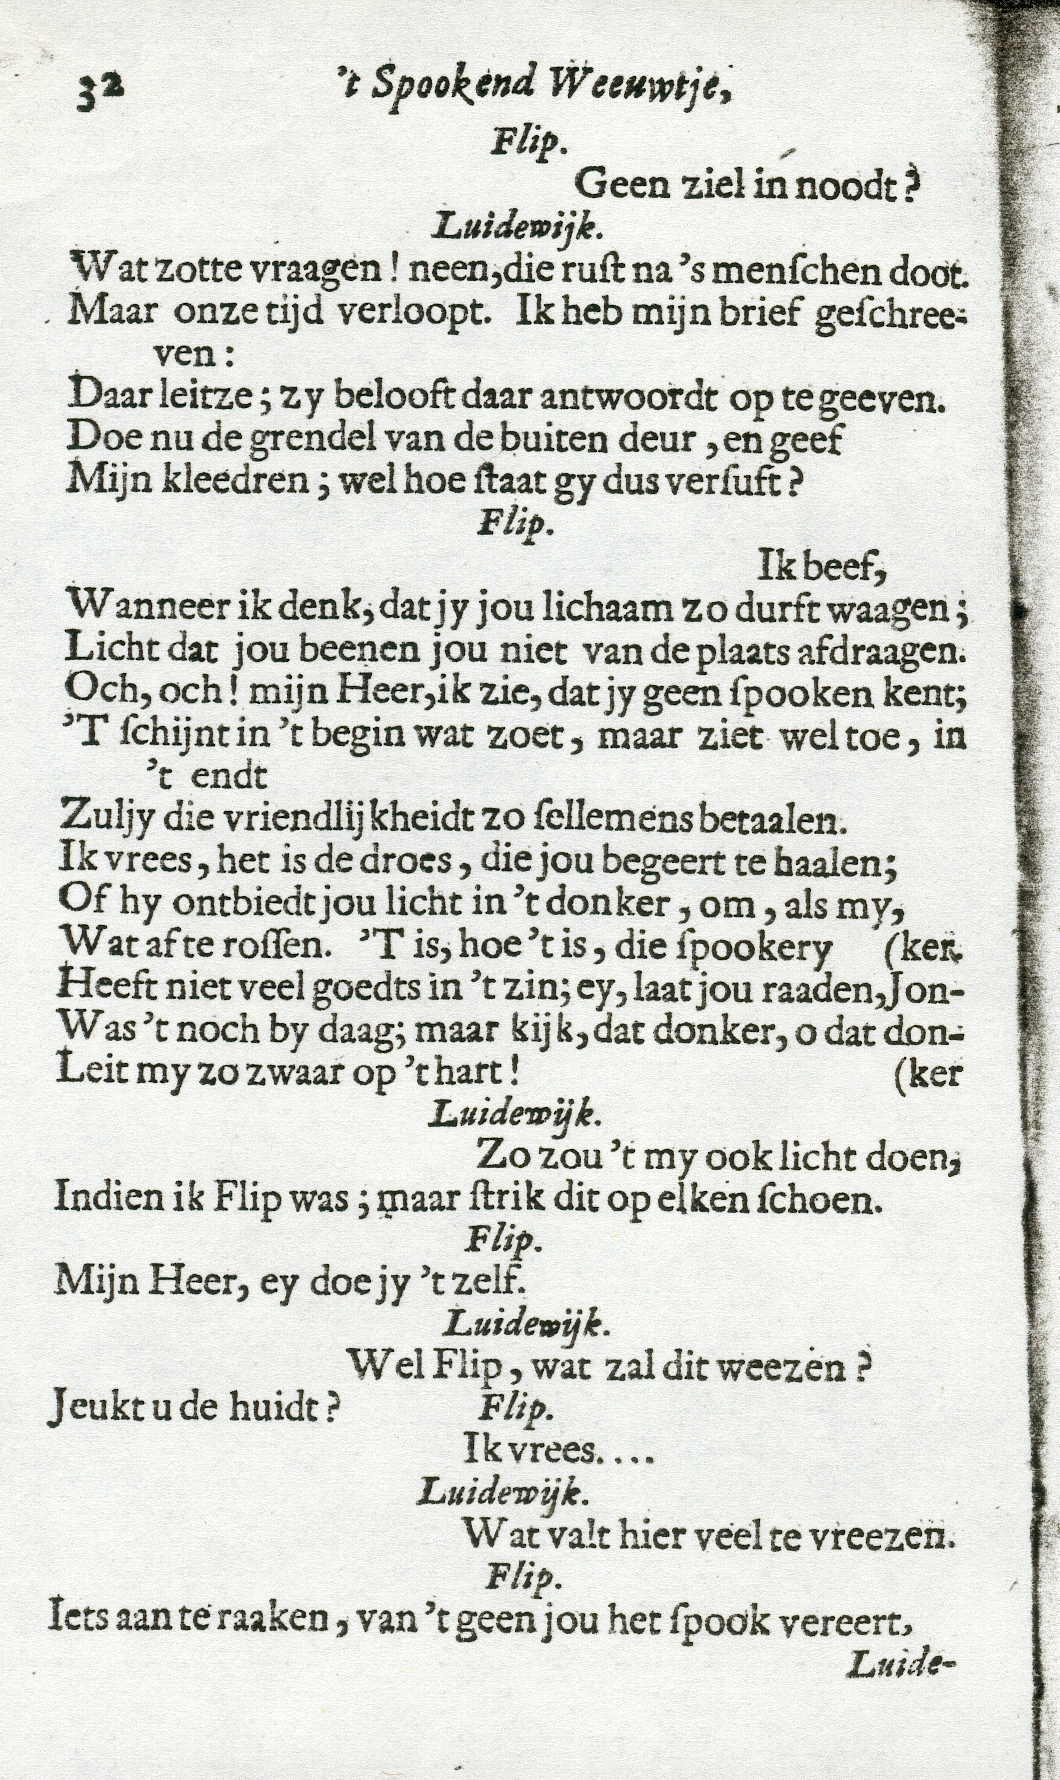 32 't Spookend Weeuwtje,
Flip.
Geen ziel in noodt?
Luidewijk.
Wat zotte vraagen! neen, die ruſt na 's menſchen doot.
Maar onze tijd verloopt. Ik heb mijn brief geſchree-
ven:
Daar leitze; zy belooft daar antwoordt op te geeven.
Doe nu de grendel van de buiten deur, en geef
Mijn kleedren; wel hoe ſtaat gy dus verſuft?
Flip.
Ik beef,
Wanneer ik denk, dat jy jou lichaam zo durft waagen;
Licht dat jou beenen jou niet van de plaats afdraagen.
Och, och! mijn Heer, ik zie, dat jy geen ſpooken kent;
'T ſchijnt in 't begin wat zoet, maar ziet wel toe, in
't endt
Zuljy die vriendlijkheidt zo ſellemens betaalen.
Ik vrees, het is de droes, die jou begeert te haalen;
Of hy ontbiedt jou licht in 't donker, om, als my,
Wat af te roſſen. 'T is, hoe 't is, die ſpookery (ker.
Heeft niet veel goedts in 't zin; ey, laat jou raaden, Jon-
Was 't noch by daag; maar kijk, dat donker, o dat don-
Leit my zo zwaar op 't hart! (ker
Luidewijk.
Zo zou 't my ook licht doen,
Indien ik Flip was; maar ſtrik dit op elken ſchoen.
Flip.
Mijn Heer, ey doe jy 't zelf.
Luidewijk.
Wel Flip, wat zal dit weezen?
Jeukt u de huidt? Flip.
Ik vrees....
Luidewijk.
Wat valt hier veel te vreezen.
Flip.
Iets aan te raaken, van 't geen jou het ſpook vereert,
Luide-